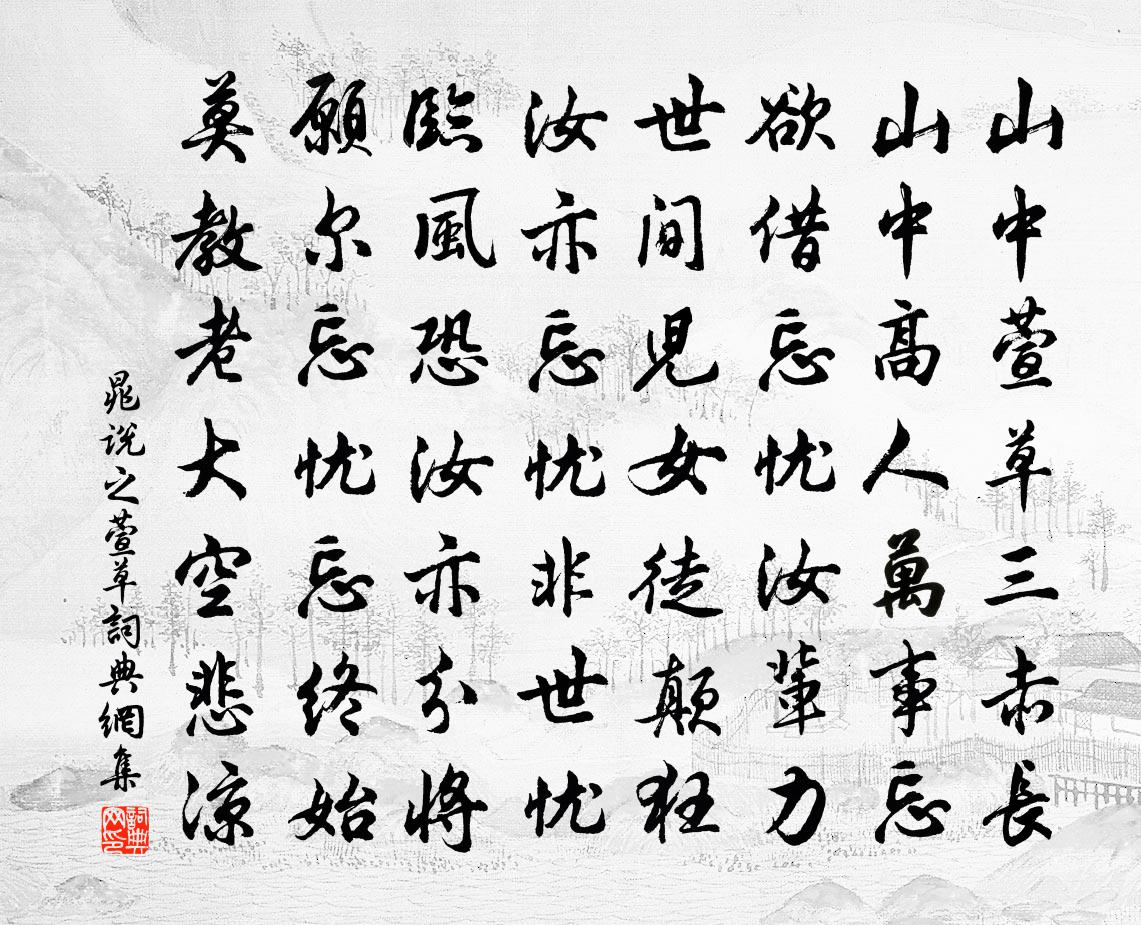 山中萱草三赤長
山中高人萬事忘
欲借忘忧汝輩力
世間児女徒顛狂
汝亦忘忧非世忧
臨風恐汝亦分將
願尔忘忧忘终始
莫教老大空悲凉
晁说之萱草詞典網集
詞典网印